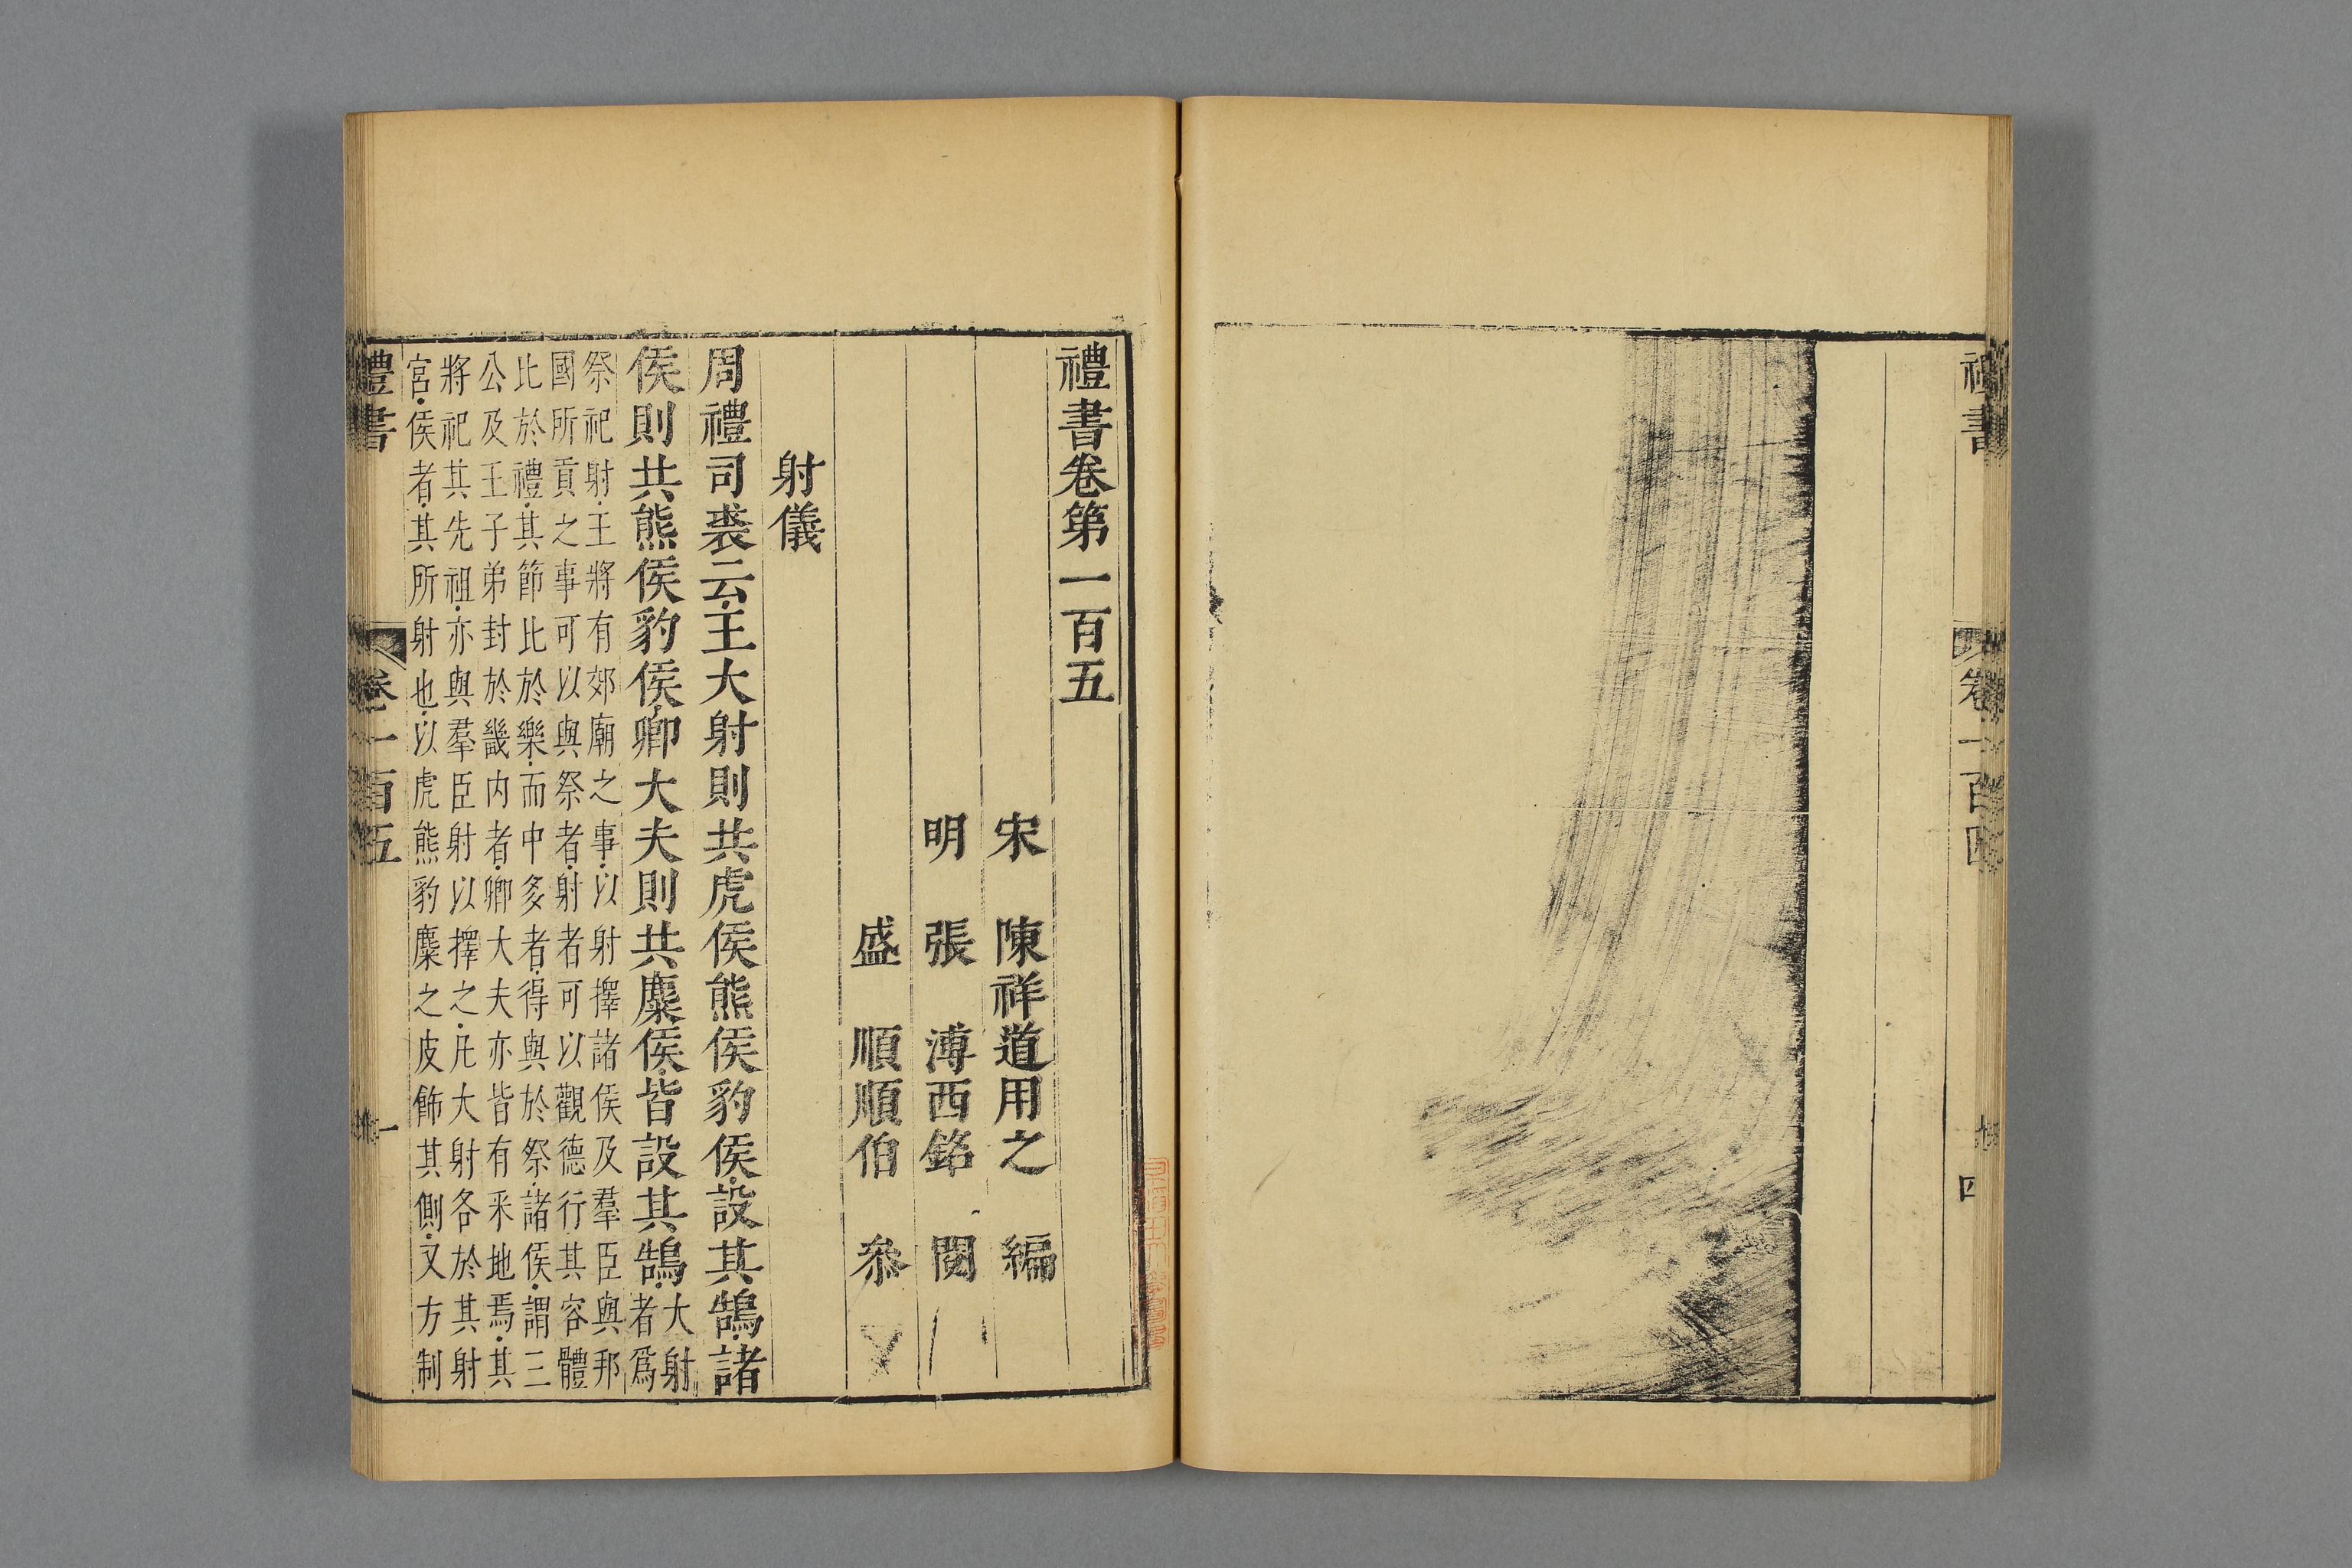 禮書
卷一百四
四
禮書卷第一百五
宋　陳祥道用之　編
明　張　溥西銘　閱
盛　順順伯　叅
射儀
周禮司裘云王大射則共虎侯熊侯豹侯設其鵠諸
侯則共熊侯豹侯卿大夫則共麋侯皆設其鵠大射
者爲
祭祀射王將有郊廟之事以射擇諸侯及羣臣與邦
國所貢之事可以與祭者射者可以觀德行其容體
比於禮其節比於樂而中多者得與於祭諸侯謂三
公及王子弟封於畿内者卿大夫亦皆有采地焉其
將祀其先祖亦與羣臣射以擇之凡大射各於其射
宮侯者其所射也以虎熊豹麋之皮飾其側又方制
禮書
卷一百五
一